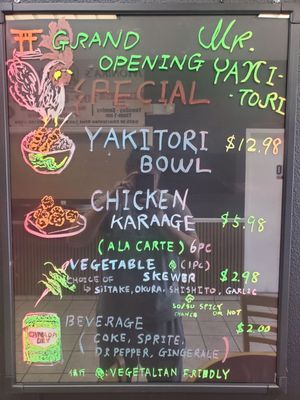 GRAND
OPENING
SPECIAL
MR.
YAKI-
-TORI
YAKITORI
BOWL
$12.98
CHICKEN
KARAAGE
$5.98
(A LA CARTE) 6PC
VEGETABLE (1PC)
SKEWER
$2.98
CHOICE OF
SIITAKE, OKURA, SHISHITO, GARLIC
50/50 SPICY
CHANCE OR NOT
BEVERAGE
$2.00
(COKE, SPRITE,
DR PEPPER, GINGERALE)
CANADA
DRY
: VEGETALIAN FRIENDLY